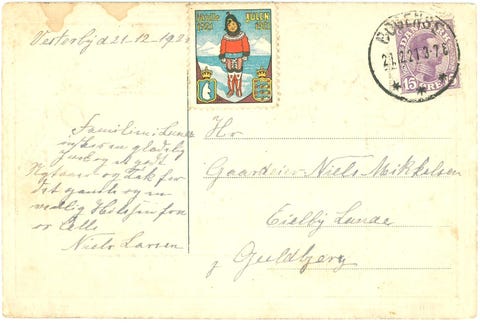 Vesterby d 21-12-1921
JULEN
1921
BOGENSE
21.12.21 3-7 E
DANMARK
15 ØRE
Familien Lunde
ønskes en glædelig
Jul og et godt
Nytaar og Tak for
det gamle og en
venlig Hilsen fra
os alle
Niels Larsen
Hr
Gaardeier Niels Mikkelsen
Eielby Lunde
p Guldbjerg